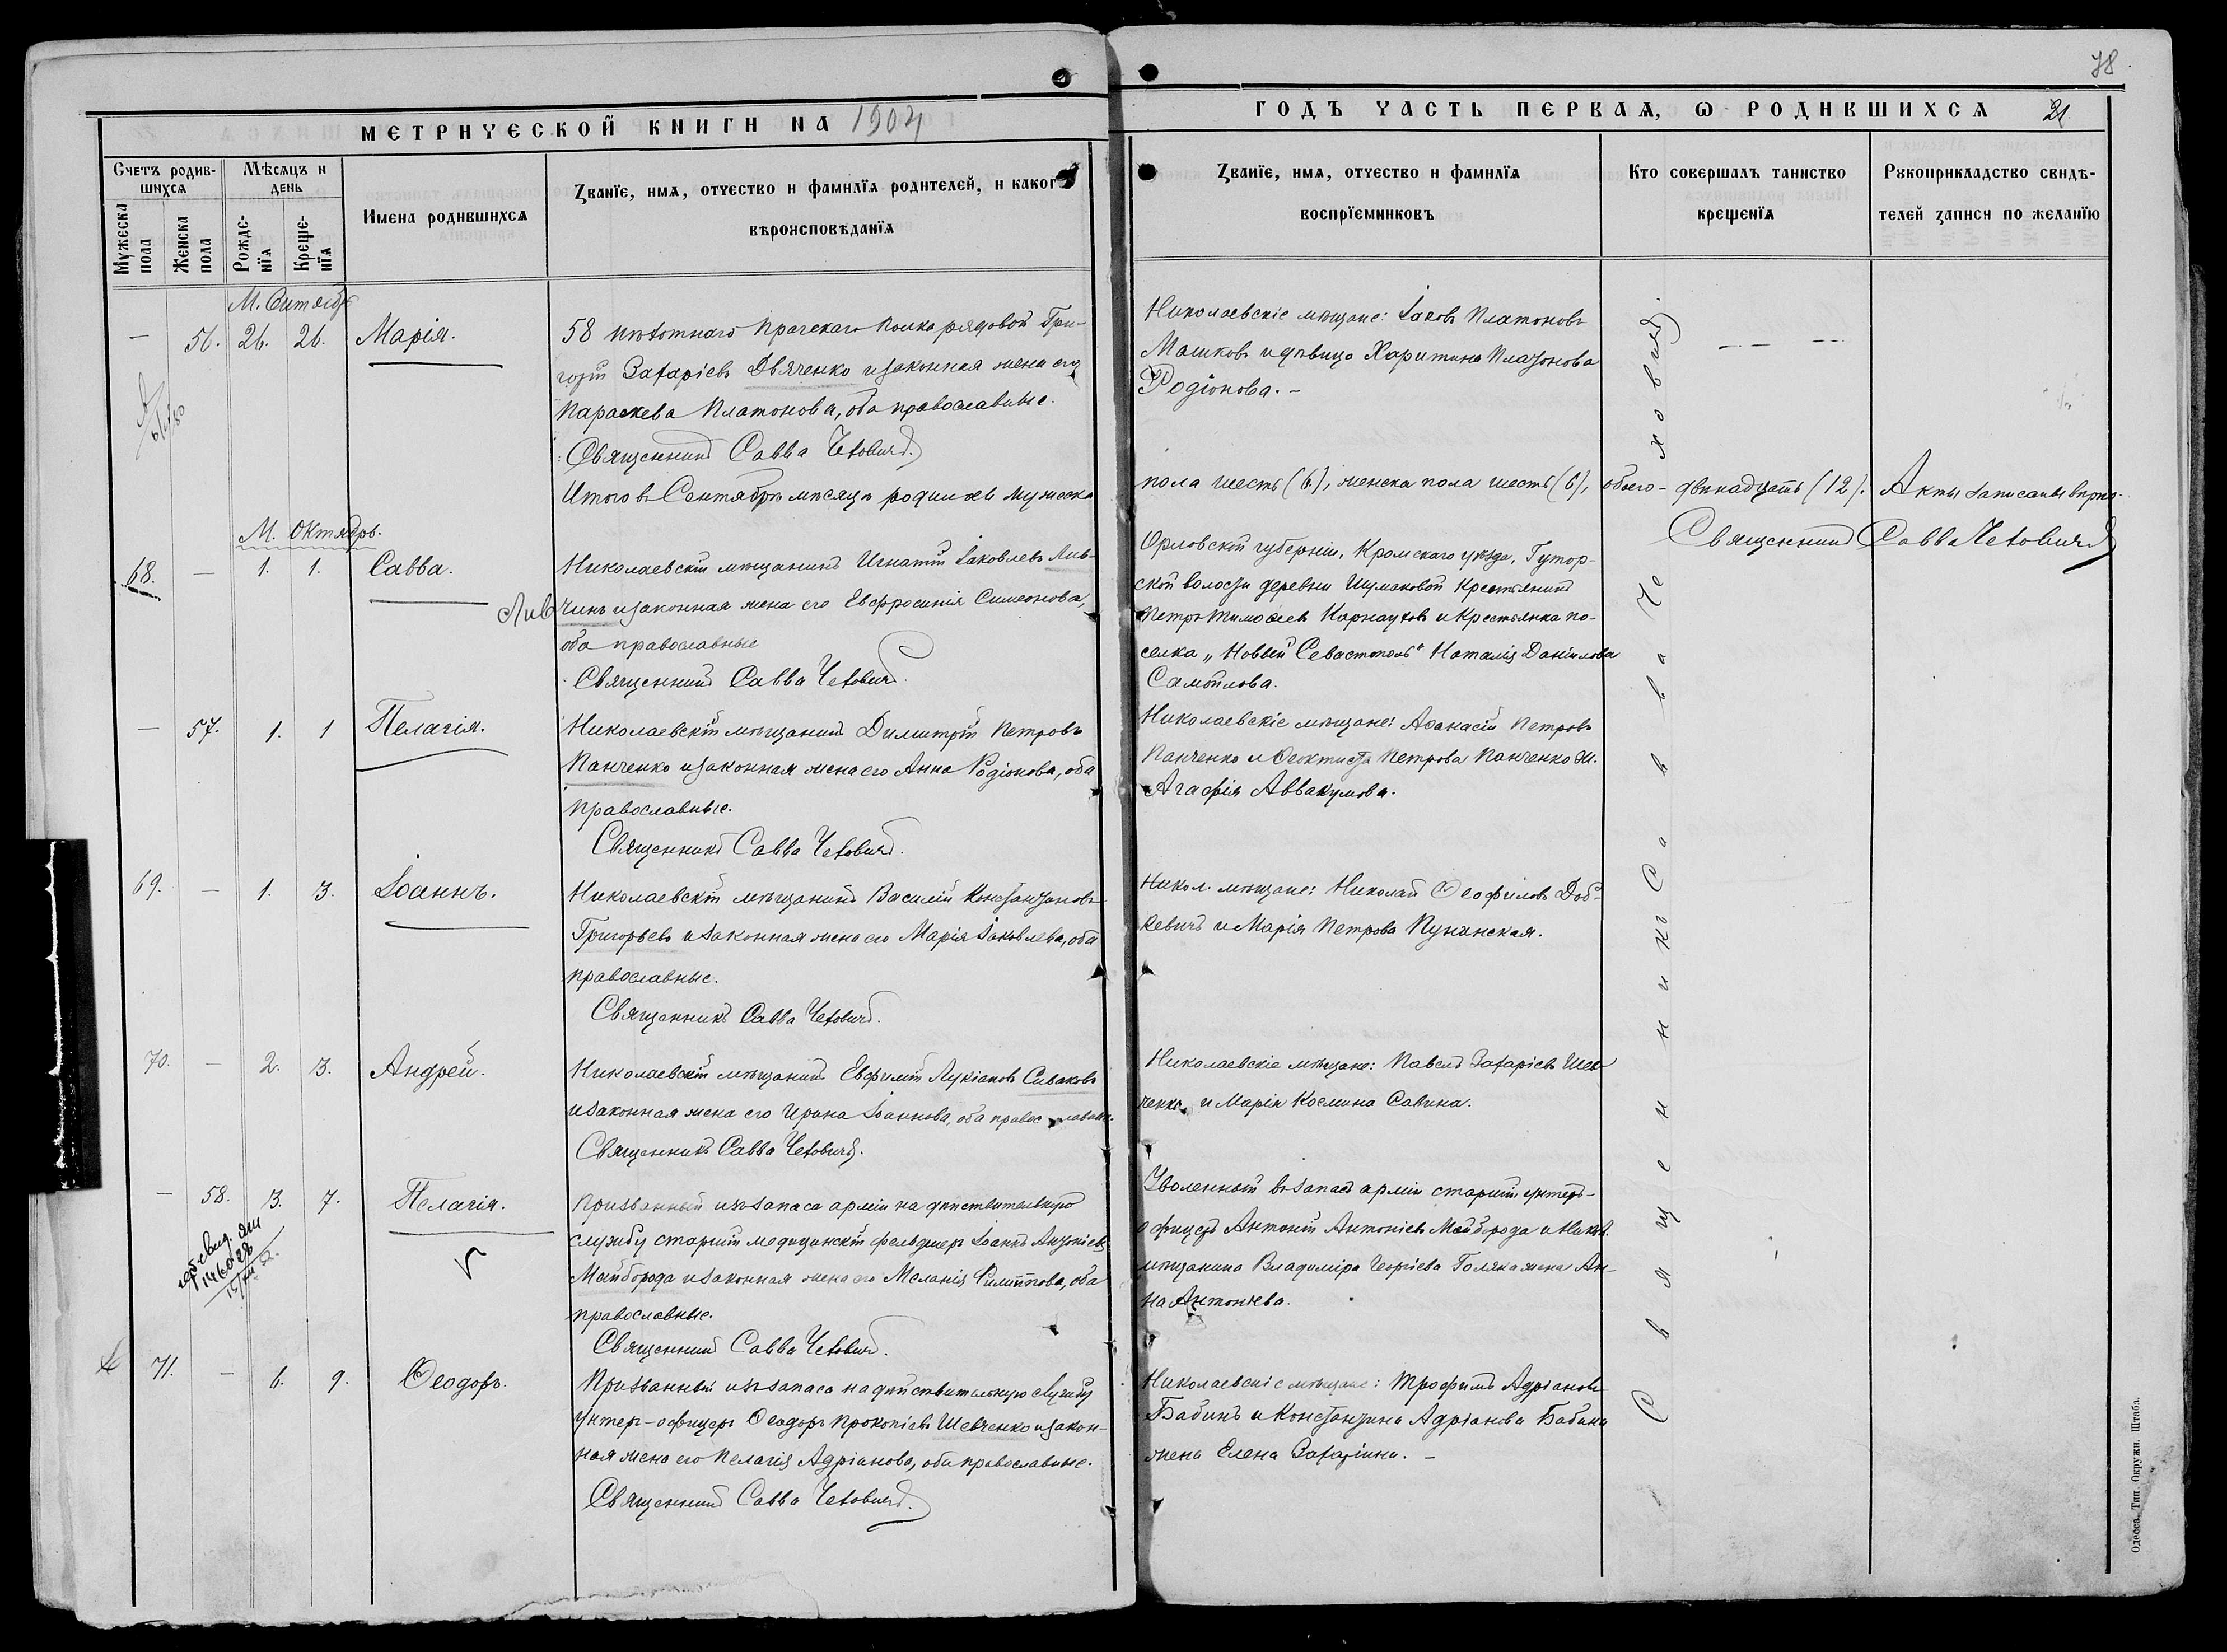 78
МЕТРИЧЕСКОЙ КНИГИ НА 1904
ГОДЪ ЧАСТЬ ПЕРВАѦ, Ѡ РОДИВШИХСѦ 21
Счетъ родившихсѧ
Мужеска пола
Женска пола
Мѣсѧцъ и день
Рожденїѧ
Крещенїѧ
Имена родившихсѧ
Званїе, имѧ, отчество и фамилїѧ родителей, и какого
вѣроисповѣданїѧ
Званїе, имѧ, отчество и фамилїѧ
воспрїемниковъ
Кто совершалъ таинство
крещенїѧ
Рукоприкладство свидѣ-
телей записи по желанїю
М. Сентябрь
— 56. 26. 26. Марія.
58 пѣхотнаго Прагскаго полка рядовой Гри-
горій Захаріевъ Дьяченко и законная жена его
Параскева Платонова, оба православные.
Священникъ Савва Чехович.
Николаевскіе мѣщане: Іаковъ Платоновъ
Машковъ и дѣвица Харитина Платонова
Родіонова. –
Итого въ Сентябрѣ мѣсяцѣ родилось мужеска
пола шесть (6), женска пола шесть (6), обоего – двѣнадцать (12). Акты записаны вѣрно.
Священникъ Савва Чехович
М. Октябрь.
68. — 1. 1. Савва.
Николаевскій мѣщанинъ Игнатій Іаковлевъ Лив-
Лив
чинъ и законная жена его Евфросинія Симеонова,
оба православные
Священникъ Савва Чехович.
Орловской губерніи, Кромскаго уѣзда, Гутор-
ской волости деревни Шумаковой крестьянинъ
Петръ Тимоѳеевъ Карнауховъ и крестьянка по-
селка „Новый Севастополь" Наталія Даніилова
Самойлова.
— 57. 1. 1 Пелагія.
Николаевскій мѣщанинъ Димитрій Петровъ
Панченко и законная жена его Анна Родіонова, оба
православные.
Священникъ Савва Чехович.
Николаевскіе мѣщане: Аѳанасій Петровъ
Панченко и Ѳеоктиста Петрова Панченко и
Агафія Аввакумова.
69. — 1. 3. Іоаннъ.
Николаевскій мѣщанинъ Василій Константиновъ
Григорьевъ и законная жена его Марія Іаковлева, оба
православные.
Священникъ Савва Чехович.
Никол. мѣщане: Николай Ѳеофиловъ Доб-
кевичъ и Марія Петрова
70. — 2. 3. Андрей.
Николаевскій мѣщанинъ Евфимій Лукіановъ Сиваковъ
и законная жена его Ирина Іоаннова, оба православн.
Священникъ Савва Чехович.
Николаевскіе мѣщане: Павелъ Захаріевъ Шев-
ченко и Марія Космина Савина.
— 58. 3. 7. Пелагія.
146028
Призванный изъ запаса арміи на дѣйствительную
службу старшій медицинскій фельдшеръ Іоаннъ Антоніевъ
Майборода и законная жена его Меланія Филиппова, оба
православные.
Священникъ Савва Чехович.
Уволенный въ запасъ арміи старшій унтеръ-
офицеръ Антоній Антоніевъ Майборода и Никол.
мѣщанина Владиміра Георгіева Голяка жена Ан-
на Антоніева.
71. — 6. 9. Ѳеодоръ.
Призванный изъ запаса на дѣйствительную службу
унтеръ-офицеръ Ѳеодоръ Прокопіевъ Шевченко и закон-
ная жена его Пелагія Адріанова, оба православные.
Священникъ Савва Чехович.
Николаевскіе мѣщане: Трофимъ Адріановъ
Бабинъ и Константина Адріанова Бабина
жена Елена Захаріина. –
Священникъ Савва Чехович.
Одесса, Тип. Окружн. Штаба.